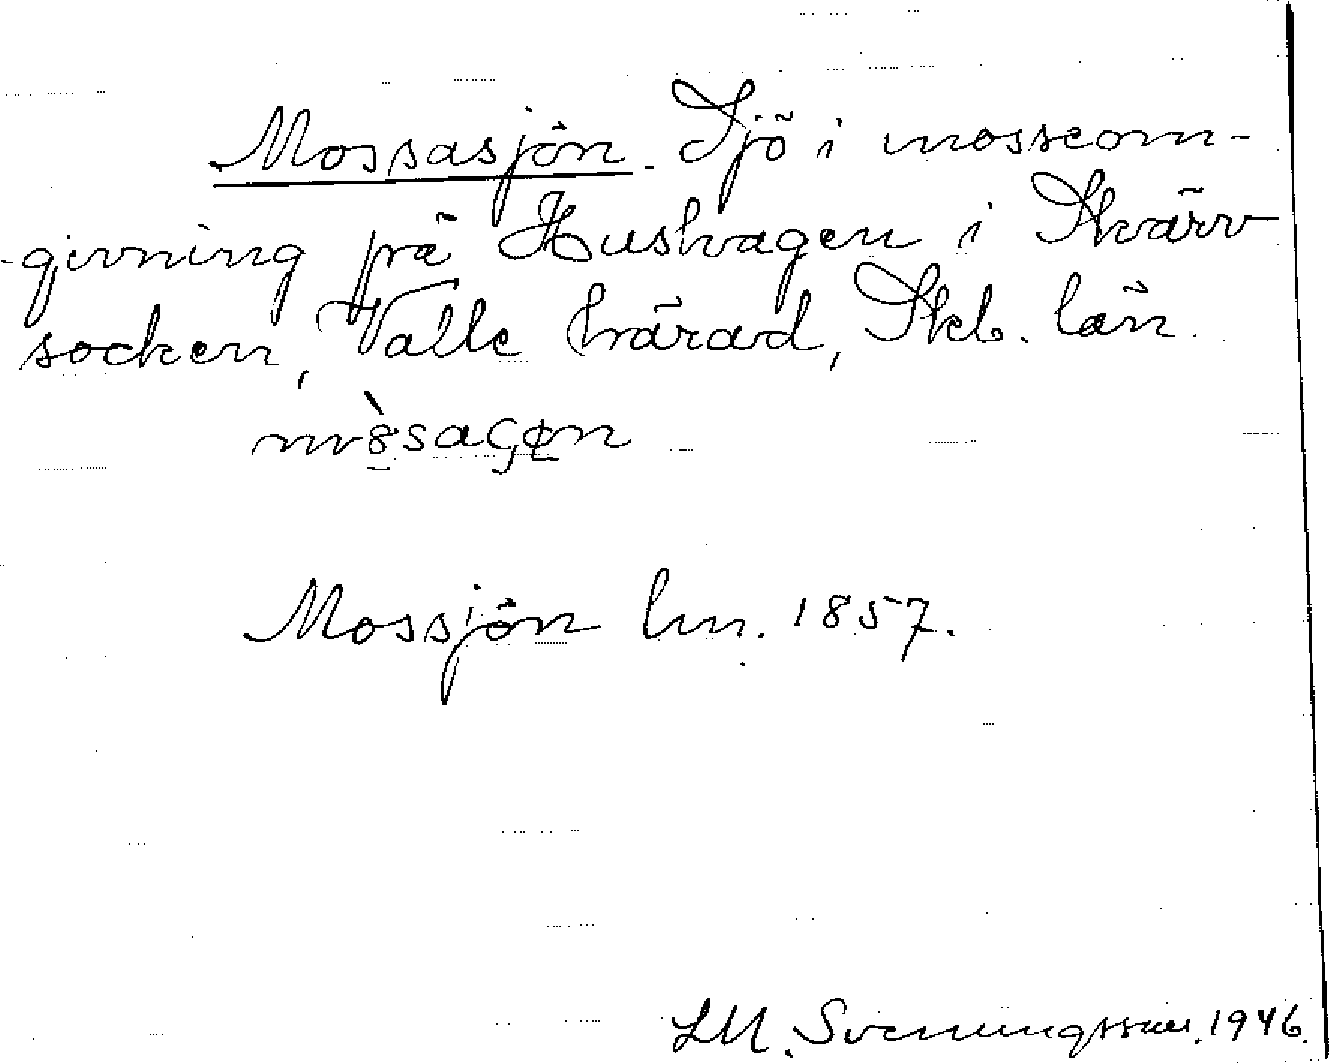 Mossasjön. Sjö i masseom-
givning på Hushagen i Skärv
socken, Valle härad, Skb. län.
Mossjön lm. 1857.
LM. Sveningsson. 1946.